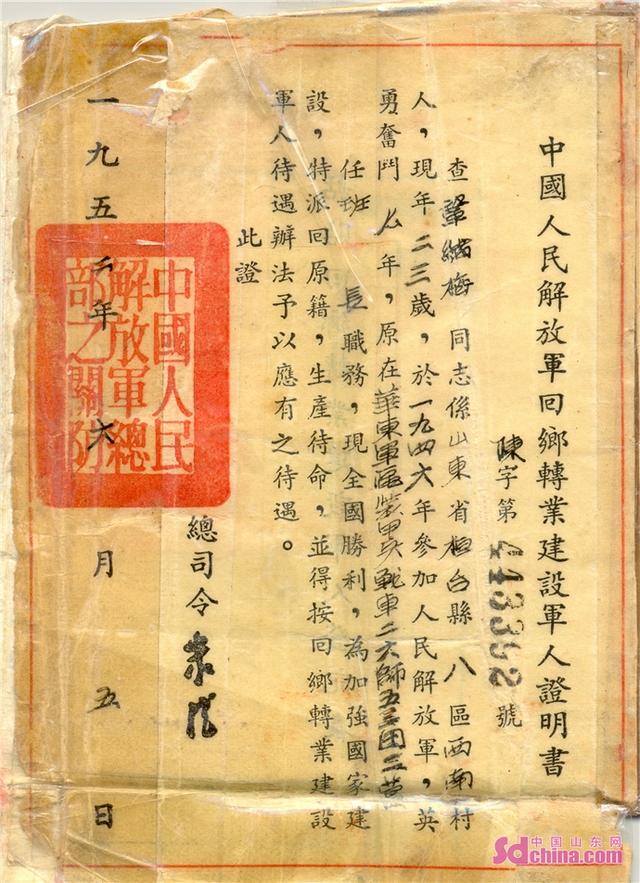 中國人民解放軍回鄉轉業建設軍人證明書
陳字第 號
查 梅同志係山東省桓台縣八區西南村
人，現年二三歲，於一九四六年參加人民解放軍，英
勇奮鬥 年，原在華東軍區裝甲兵戰車二六師五三团二营
任班長職務，現全國勝利，為加強國家建
設，特派回原籍，生產待命，並得按回鄉轉業建設
軍人待遇辦法予以應有之待遇。
此證
總司令 朱德
中國人民
解放軍總
部之關防
一九五二年六月五日
中国山东网
Sdchina.com